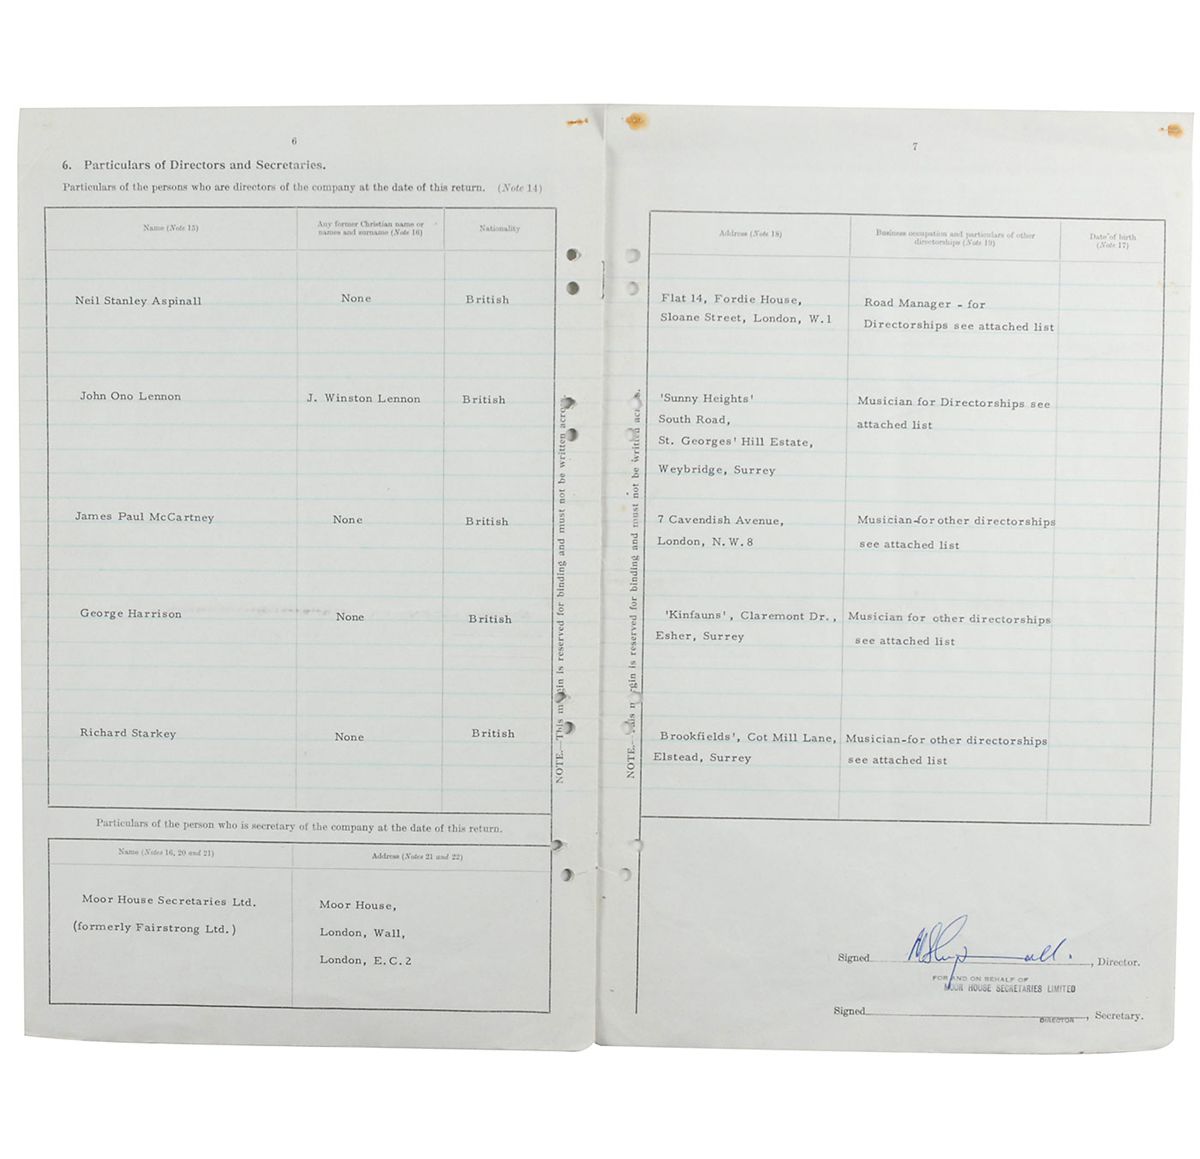 6
6. Particulars of Directors and Secretaries.
Particulars of the persons who are directors of the company at the date of this return. (Note 14)
Name (Note 15)
Any former Christian name or
names and surname (Note 16)
Nationality
Neil Stanley Aspinall
None
British
John Ono Lennon
J. Winston Lennon
British
James Paul McCartney
None
British
George Harrison
None
British
Richard Starkey
None
British
NOTE.—This margin is reserved for binding and must not be written across.
Particulars of the person who is secretary of the company at the date of this return.
Name (Notes 16, 20 and 21)
Address (Notes 21 and 22)
Moor House Secretaries Ltd.
(formerly Fairstrong Ltd.)
Moor House,
London, Wall,
London, E.C.2
7
Address (Note 18)
Business occupation and particulars of other
directorships (Note 19)
Date of birth
(Note 17)
Flat 14, Fordie House,
Sloane Street, London, W.1
Road Manager - for
Directorships see attached list
'Sunny Heights'
South Road,
St. Georges' Hill Estate,
Weybridge, Surrey
Musician for Directorships see
attached list
7 Cavendish Avenue,
London, N.W.8
Musician-for other directorships
see attached list
'Kinfauns', Claremont Dr.,
Esher, Surrey
Musician for other directorships
see attached list
Brookfields', Cot Mill Lane,
Elstead, Surrey
Musician-for other directorships
see attached list
NOTE.—This margin is reserved for binding and must not be written across.
Signed
, Director.
FOR AND ON BEHALF OF
MOOR HOUSE SECRETARIES LIMITED
Signed
DIRECTOR
, Secretary.